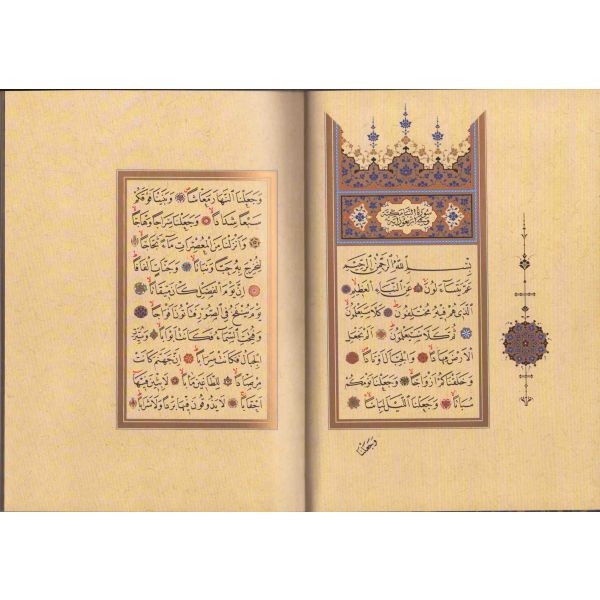 سورة النبا مكية
وهي اربعون اية
بِسْمِ اللهِ الرَّحْمٰنِ الرَّحِيمِ
عَمَّ يَتَسَاءَلُونَ عَنِ النَّبَإِ الْعَظِيمِ
الَّذِي هُمْ فِيهِ مُخْتَلِفُونَ كَلَّا سَيَعْلَمُونَ
ثُمَّ كَلَّا سَيَعْلَمُونَ اَلَمْ نَجْعَلِ
الْاَرْضَ مِهَادًا وَالْجِبَالَ اَوْتَادًا
وَخَلَقْنَاكُمْ اَزْوَاجًا وَجَعَلْنَا نَوْمَكُمْ
سُبَاتًا وَجَعَلْنَا الَّيْلَ لِبَاسًا
وجعلنا
وَجَعَلْنَا النَّهَارَ مَعَاشًا وَبَنَيْنَا فَوْقَكُمْ
سَبْعًا شِدَادًا وَجَعَلْنَا سِرَاجًا وَهَّاجًا
وَاَنْزَلْنَا مِنَ الْمُعْصِرَاتِ مَاءً ثَجَّاجًا
لِنُخْرِجَ بِهِ حَبًّا وَنَبَاتًا وَجَنَّاتٍ اَلْفَافًا
اِنَّ يَوْمَ الْفَصْلِ كَانَ مِيقَاتًا
يَوْمَ يُنْفَخُ فِي الصُّورِ فَتَأْتُونَ اَفْوَاجًا
وَفُتِحَتِ السَّمَاءُ فَكَانَتْ اَبْوَابًا وَسُيِّرَتِ
الْجِبَالُ فَكَانَتْ سَرَابًا اِنَّ جَهَنَّمَ كَانَتْ
مِرْصَادًا لِلطَّاغِينَ مَاٰبًا لَابِثِينَ فِيهَا
اَحْقَابًا لَا يَذُوقُونَ فِيهَا بَرْدًا وَلَا شَرَابًا